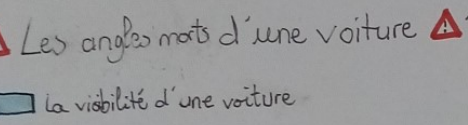 Les angles morts d'une voiture
la visibilité d'une voiture